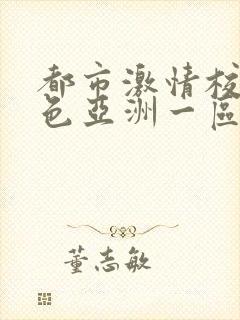 都市激情校
色亞洲一區
董志敏